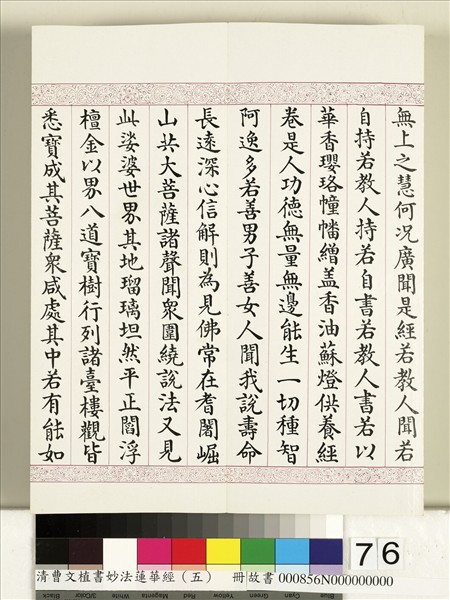 無上之慧何況廣聞是經若教人聞若
自持若教人持若自書若教人書若以
華香瓔珞幢幡繒盖香油蘇燈供養經
卷是人功德無量無邊能生一切種智
阿逸多若善男子善女人聞我說壽命
長遠深心信解則為見佛常在耆闍崛
山共大菩薩諸聲聞衆圍繞說法又見
此娑婆世界其地瑠璃坦然平正閻浮
檀金以界八道寶樹行列諸臺樓觀皆
悉寶成其菩薩衆咸處其中若有能如
76
清曹文植書妙法蓮華經（五） 冊故書 000856N000000000
Black 3/Color White Magenta Red Yellow Green Cyan Blue